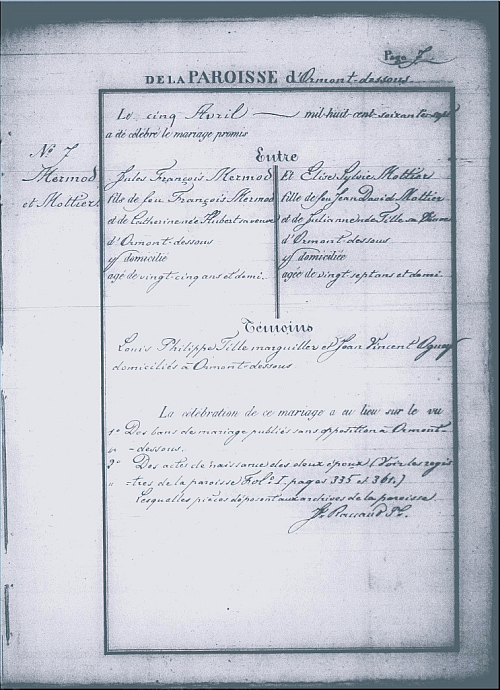 Page 7
DE LA PAROISSE d'Ormont-dessous
Le cinq Avril mil huit cent soixante sept
a été célébré le mariage promis
N.º 7
Mermod
et Mottier
Entre
Jules François Mermod
fils de feu François Mermod
et de Catherine née Hubert sa veuve
d'Ormont-dessous
y domicilié
agé de vingt-cinq ans et demi.
Et Elise Sylvie Mottier
fille de feu Jean David Mottier
et de Julianne née Tille sa veuve
d'Ormont-dessous
y domiciliée
agée de vingt sept ans et demi
Témoins
Louis Philippe Tille marguiller et Jean Vincent
domiciliés à Ormont-dessous
La célébration de ce mariage a eu lieu sur le vu
1º Des bans de mariage publiés sans opposition à Ormont-
" -dessous.
2º Des actes de naissance des deux époux (Voir les regis
" tres de la paroisse Folº I. pages 335 et 361.)
Lesquelles pièces déposent aux archives de la paroisse.